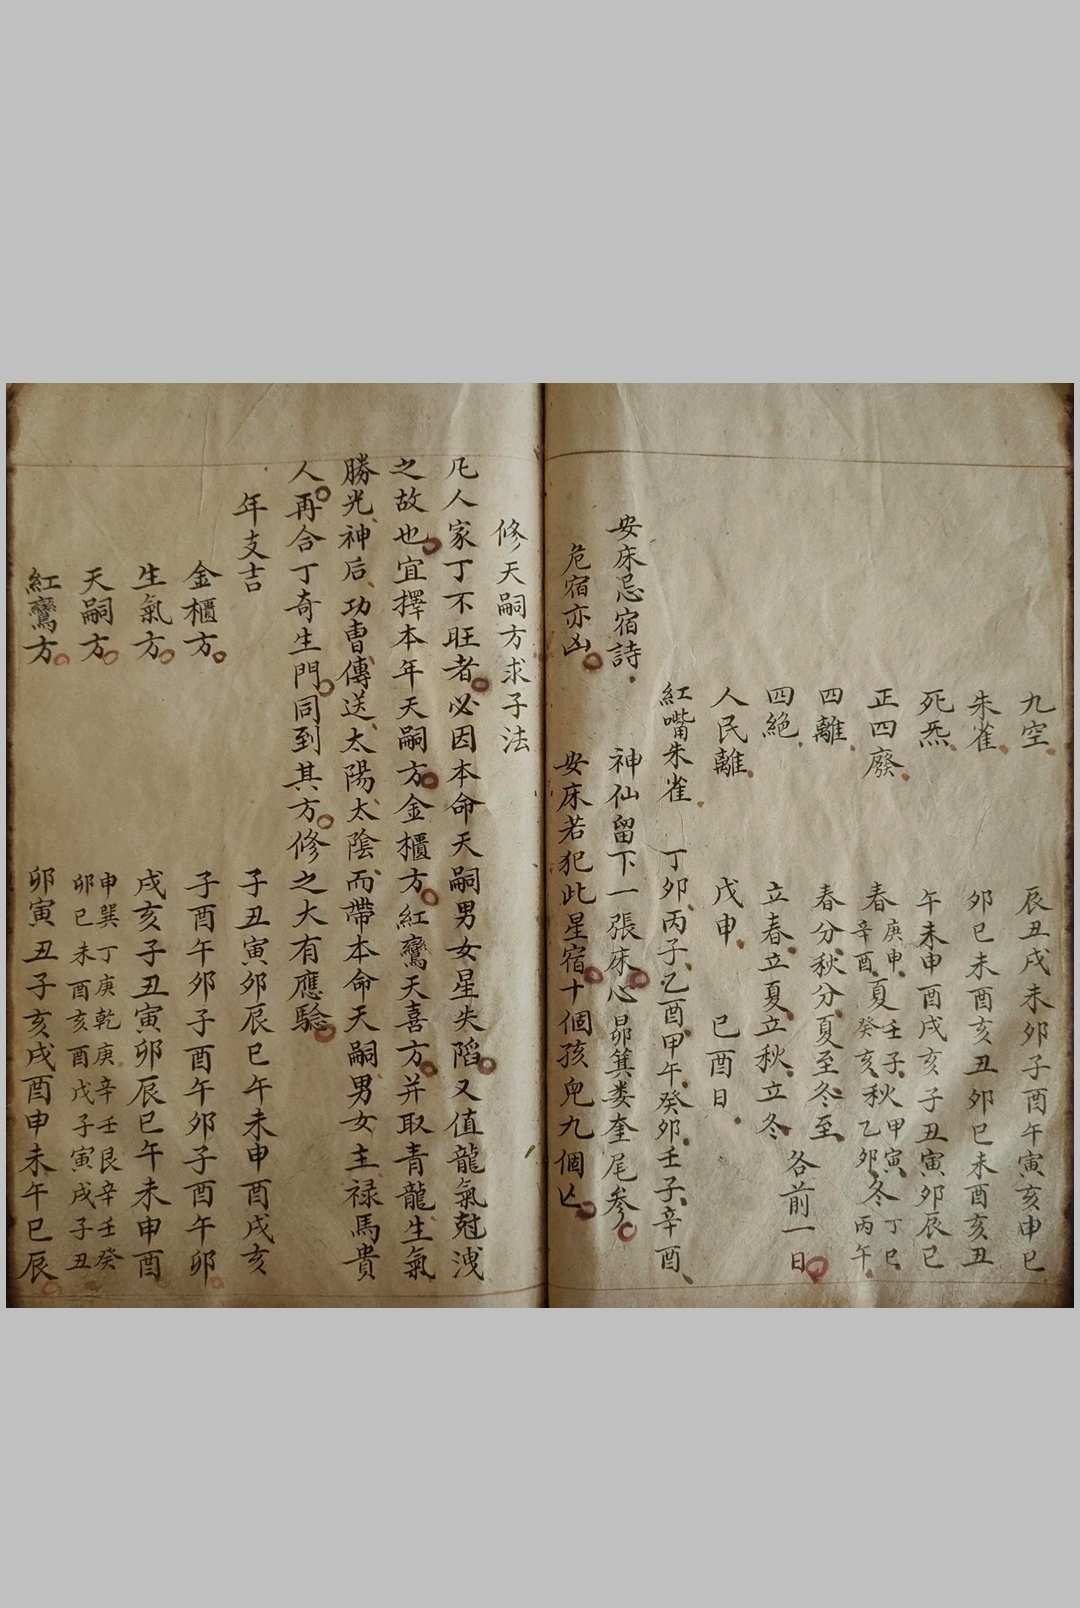 九空 辰丑戌未卯子酉午寅亥申巳
朱雀 卯巳未酉亥丑卯巳未酉亥丑
死炁 午未申酉戌亥子丑寅卯辰巳
正四廢 春庚申辛酉夏壬子癸亥秋甲寅乙卯冬丁巳丙午
四離 春分秋分夏至冬至
四絕 立春立夏立秋立冬 各前一日
人民離 戊申 己酉日
紅嘴朱雀 丁卯丙子乙酉甲午癸卯壬子辛酉
安床忌宿詩 神仙留下一張床心昴箕娄奎尾參
危宿亦凶 安床若犯此星宿十個孩兒九個亡
修天嗣方求子法
凡人家丁不旺者必因本命天嗣男女星失陷又值龍氣尅洩
之故也宜擇本年天嗣方金櫃方紅鸞天喜方并取青龍生氣
勝光神后功曹傳送太陽太陰而帶本命天嗣男女主禄馬貴
人再合丁奇生門同到其方修之大有應驗
年支吉 子丑寅卯辰巳午未申酉戌亥
金櫃方 子酉午卯子酉午卯子酉午卯
生氣方 戌亥子丑寅卯辰巳午未申酉
天嗣方 申巽丁庚乾庚辛壬艮辛壬癸
卯巳未酉亥酉戌子寅戌子丑
紅鸞方 卯寅丑子亥戌酉申未午巳辰